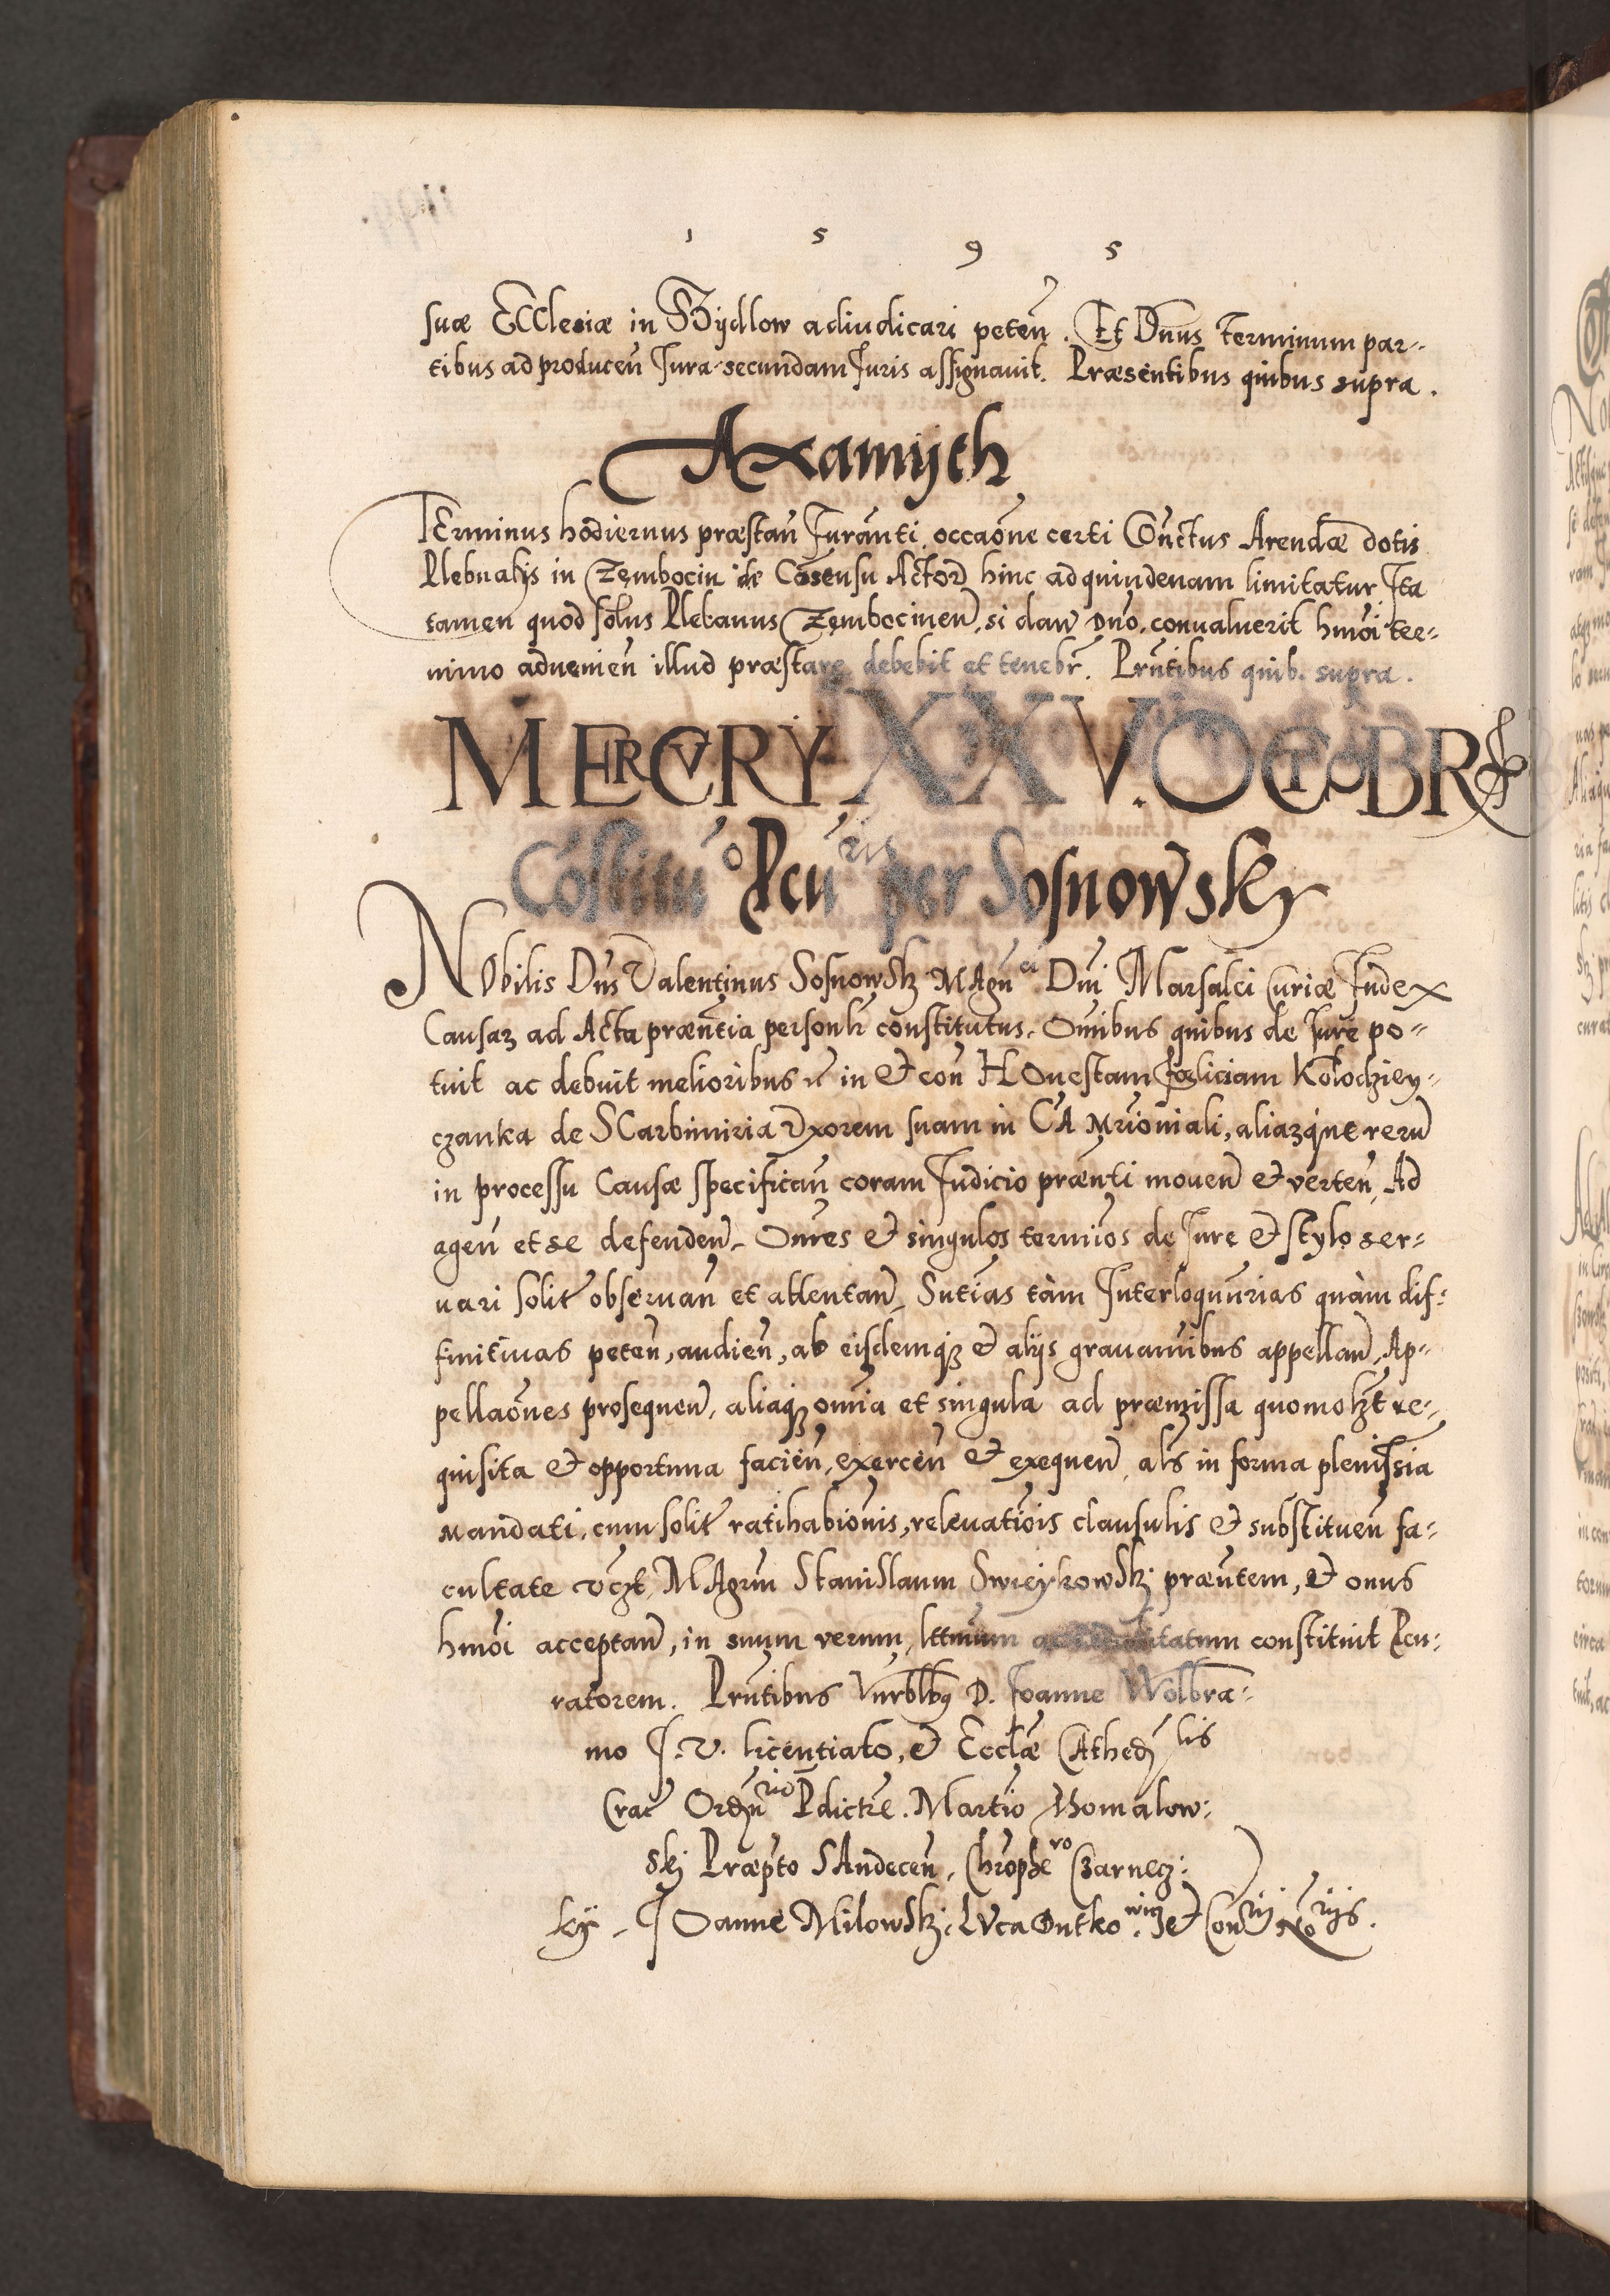 1 5 9 5
suæ ECClesiæ in Bydlow adiudicari peteñ. Et Dñus terminum par-
tibus ad produceñ Jura secundam Juris assignauit. Præsentibus quibus supra.
Axamyth
TErminus hodiernus præstañ Juranti occaõne certi Conctus Arendæ dotis
Plebnalis in Zembocin de Cõsensu Actor hinc ad quindenam limitatur Ita
tamen quod solus Plebanus Zembocineñ, si dañ Dño, conualuerit hmõi ter-
mino adueniēn illud præstare debebit et tenebr̃. Prñtibus quib. supra.
MERCVRY XXV. OCTOBR
Cõstituõ Pcuris per Sosnowsky
NObilis Dñs Valentinus Sosnowskj MAgñci Dñi Marsalci Curiæ Judex
Causaꝝ ad Acta præñtia personlr constitutus. Omibus quibus de Jure po-
tuit ac debuit melioribus in et coñ HOnestam Fœliciam Kolodziey-
czanka de SCarbimiria Vxorem suam in CA Mrĩoniali, aliazq́ue rerũ
in processu Causæ specificañ coram Judicio præñti moueñ et verteñ, Ad
ageñ et se defendeñ, Omēs et singulos termĩos de Jure et stylo ser-
uari solit̃ obseruañ et attentañ, Sñtias tàm Interloquũrias quàm dif-
finitiuas peteñ, audieñ, ab eisdemqꝫ et alijs grauamĩbus appellañ, Ap-
pellaões prosequeñ, aliaqꝫ omia et singula ad præmissa quomolꝫt re-
quisita et opportuna facieñ, exerceñ et exequeñ, als in forma plenissĩa
mandati, cum solit̃ ratihabiõnis, releuatiõis clausulis et substitueñ fa-
cultate vczt, MAgrum Stanislaum Swieykowskj præñtem, et onus
hmõi acceptañ, in suum verum, lttimum constituit Pcu-
ratorem. Prñtibus Vñrblbꝫ D. Joanne Wolbra-
mo J. V. licentiato, et Ecclæ CAthedlis
Crac Ordñrio Pdictre. Martio Homalow-
skj Præpto SAndeceñ, Chrõphero Czarnecz-
ky, JOanne Milowskj, LVca Dutkowicz et Conrij Norijs.